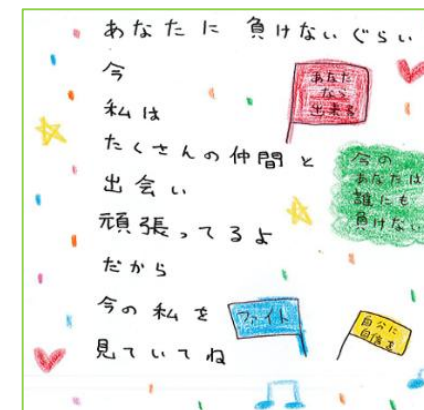 あなたに 負けないぐらい
今
私は
たくさんの仲間と
出会い
頑張ってるよ
だから
今の私を
見ていてね
あなた
なら
出来る
今の
あなたは
誰にも
負けない
ファイト
自分に
自信を